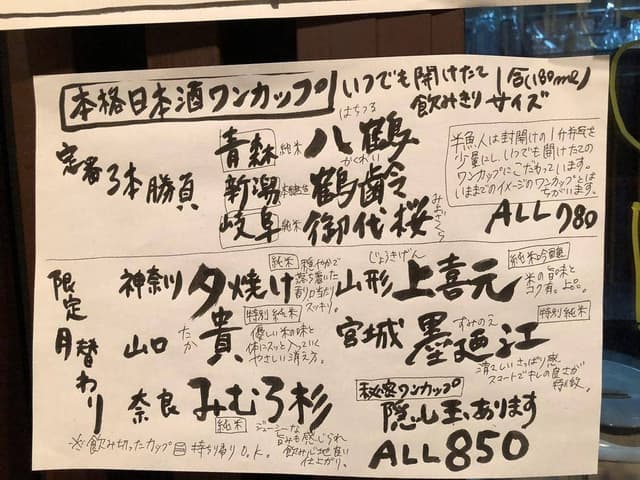 本格日本酒ワンカップ いつでも開けたて 1合(180ml)
飲みきりサイズ
定番3本勝負
青森 純米 八鶴 はちつる
新潟 本醸造 鶴齢 かくれい
岐阜 純米 御代桜 みよざくら
半魚人は封開けの1升弁を
少量にし、いつでも開けたての
ワンカップにこだわっています。
いままでのイメージのワンカップとは
ちがいます。
ALL 780
限定月替わり
神奈川 夕焼け
純米
穏やかで
落ち着いた
割り当たり
スッキリ。
山形 上喜元 じょうきげん
純米吟醸
米の旨味と
コク有。上品。
山口 貴 たか
特別純米
優しい米の味と
体にスッと入っていく
やさしい消え方。
宮城 墨廼江 すみのえ
特別純米
清々しいさっぱり感
スマートでキレの良さが
特徴。
奈良 みむろ杉
純米
ジューシーな
旨みも感じられ
飲み心地良い
仕上がり。
秘密ワンカップ
隠し玉、あります
ALL 850
※飲み切ったカップ 持ち帰りO.K.